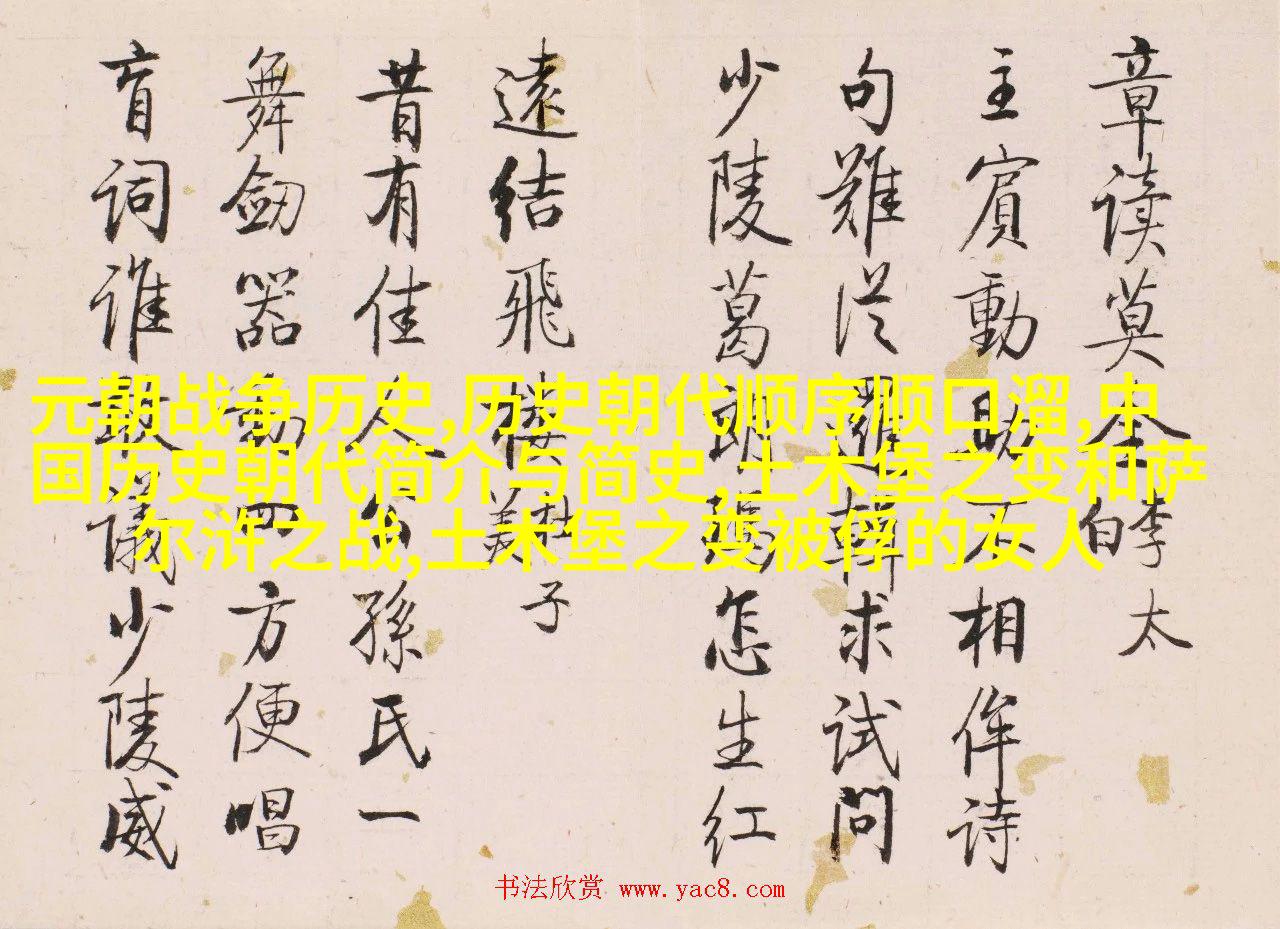 元朝战争历史,历史朝代顺序顺口溜,中
国历史朝代简介与简史,土木堡之变和萨
尔浒之战,土木堡之变被俘的女人
章读莫全 李太白
主賓動助不相侔诗
句難從韓求试問
少陵葛怎生红
遠结飛樓 杜子美
昔有佳人公孫氏一
舞劒器動四方便唱
盲词谁敢議少陵威
书法欣赏 www.yac8.com